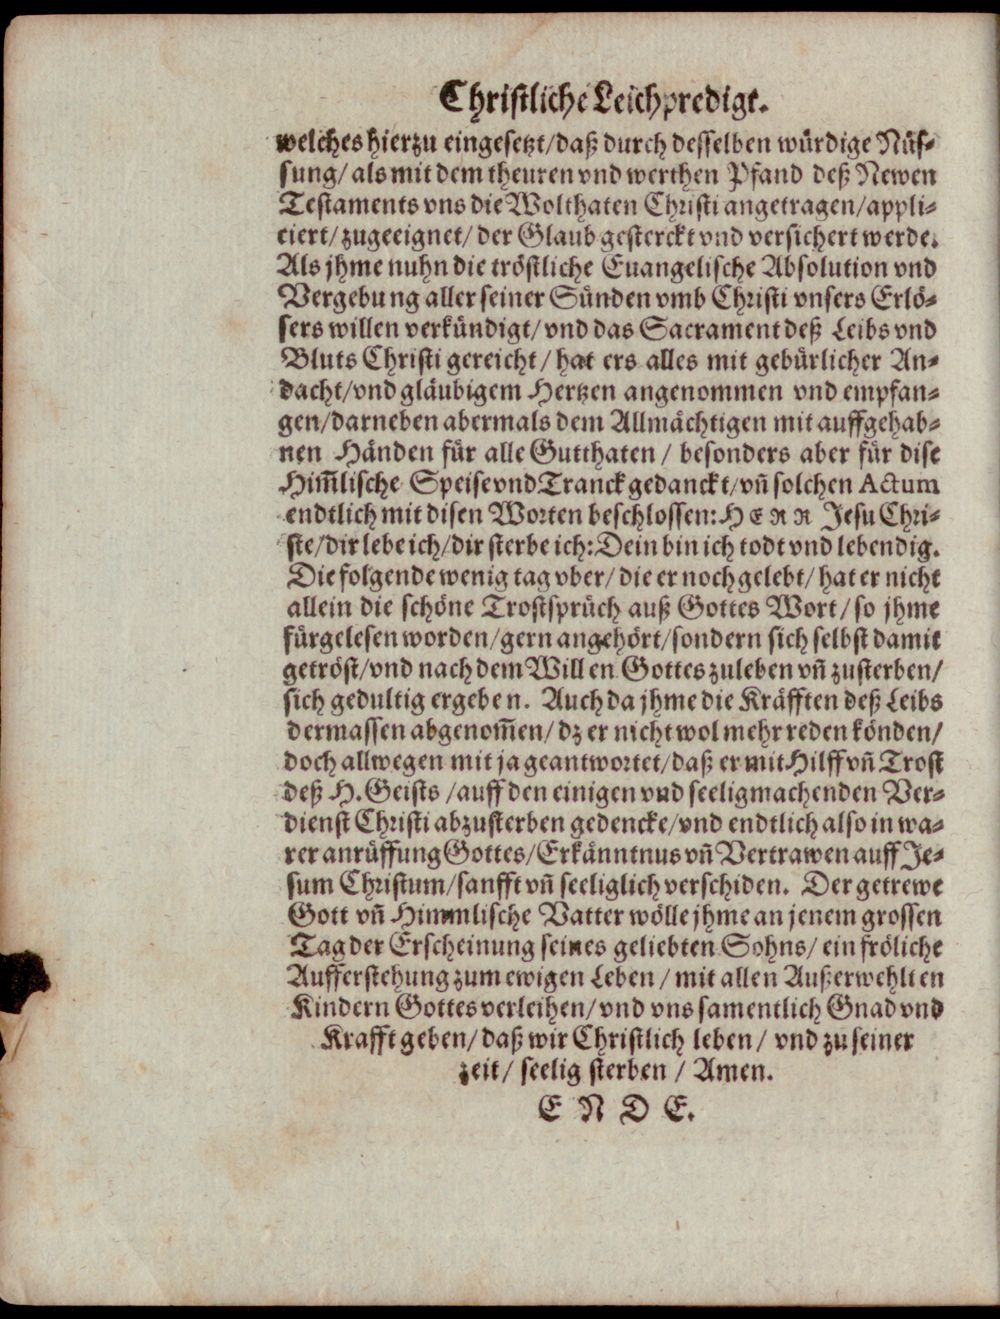 Christliche Leichpredigt.
welches hierzu eingesetzt/daß durch desselben würdige Nüs-
sung/ als mit dem theuren vnd werthen Pfand deß Newen
Testaments vns die Wolthaten Christi angetragen/appli-
ciert/zugeeignet/der Glaub gesterckt vnd versichert werde.
Als jhme nuhn die tröstliche Euangelische Absolution vnd
Vergebung aller seiner Sünden vmb Christi vnsers Erlö-
sers willen verkündigt/vnd das Sacrament deß Leibs vnd
Bluts Christi gereicht/ hat ers alles mit gebürlicher An-
dacht/vnd gläubigem Hertzen angenommen vnd empfan-
gen/darneben abermals dem Allmächtigen mit auffgehab-
nen Händen für alle Gutthaten / besonders aber für dise
Him̃lische Speise vnd Tranck gedanckt/vñ solchen Actum
endtlich mit disen Worten beschlossen: HERR Jesu Chri-
ste/dir lebe ich/dir sterbe ich: Dein bin ich todt vnd lebendig.
Die folgende wenig tag vber/die er noch gelebt/hat er nicht
allein die schöne Trostsprüch auß Gottes Wort/so jhme
fürgelesen worden/gern angehört/sondern sich selbst damit
getröst/vnd nach dem Willen Gottes zuleben vñ zusterben/
sich gedultig ergeben. Auch da jhme die Kräfften deß Leibs
dermassen abgenom̃en/dz er nicht wol mehr reden könden/
doch allwegen mit ja geantwortet/daß er mit Hilff vñ Trost
deß H. Geists /auff den einigen vnd seeligmachenden Ver-
dienst Christi abzusterben gedencke/vnd endtlich also in wa-
rer anrüffung Gottes/Erkänntnus vñ Vertrawen auff Je-
sum Christum/sanfft vñ seeliglich verschiden. Der getrewe
Gott vñ Himmlische Vatter wölle jhme an jenem grossen
Tag der Erscheinung seines geliebten Sohns/ ein fröliche
Aufferstehung zum ewigen Leben / mit allen Außerwehlten
Kindern Gottes verleihen/vnd vns samentlich Gnad vnd
Krafft geben/daß wir Christlich leben/ vnd zu seiner
zeit/ seelig sterben / Amen.
E N D E.